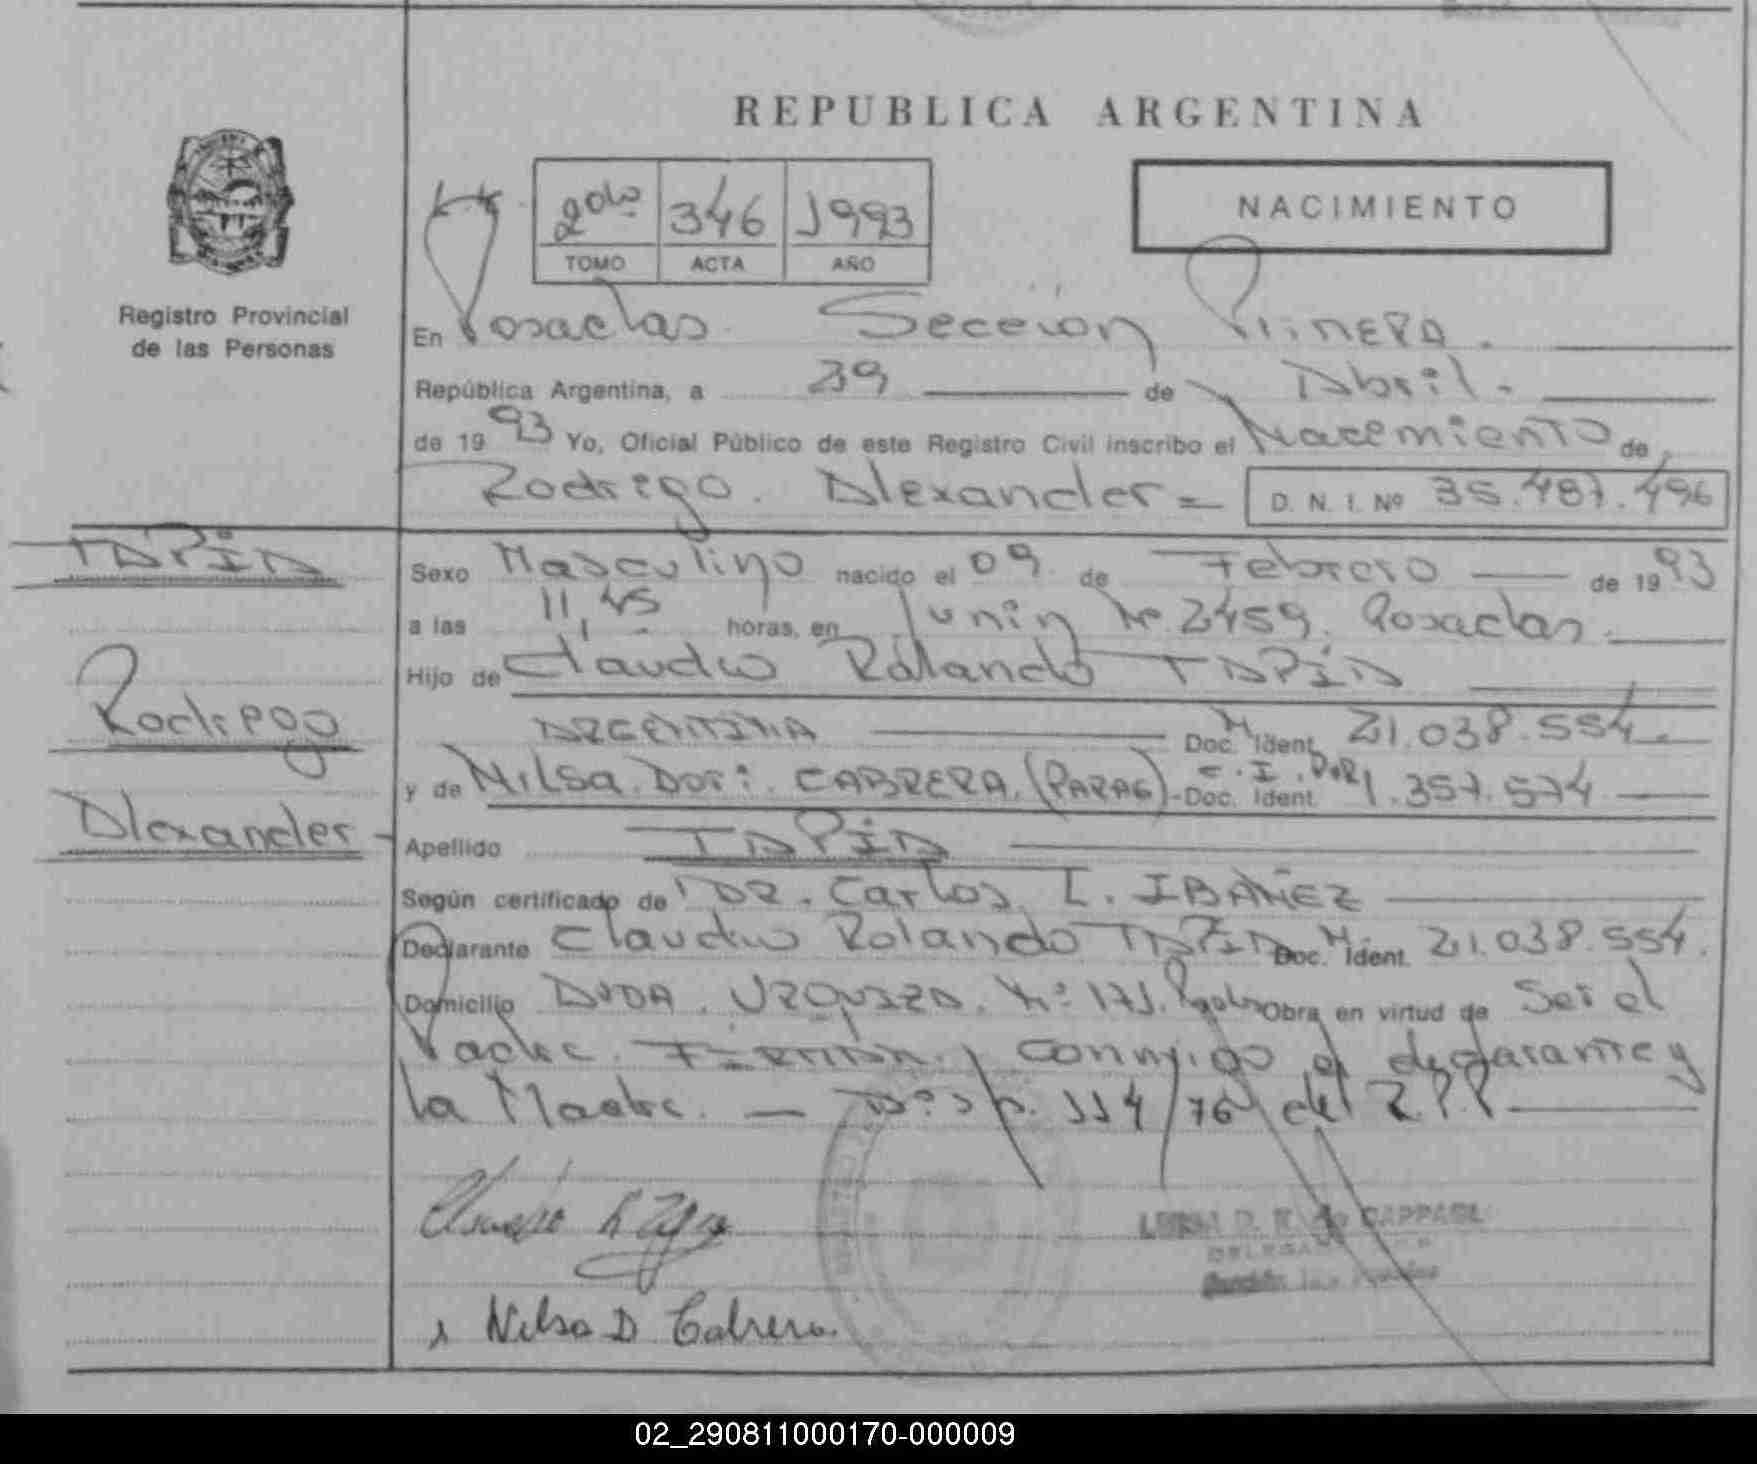 REPUBLICA ARGENTINA
2do 346 1993
TOMO ACTA AÑO
NACIMIENTO
Registro Provincial
de las Personas
En Posadas. Sección Primera.
República Argentina, a 29 de Abril.
de 1993 Yo, Oficial Público de este Registro Civil inscribo el Nacimiento de
Rodrigo. Alexander = D. N. I. Nº 35.487.496
TAPIA
Rodrigo
Alexander
Sexo Masculino nacido el 09 de Febrero de 1993
a las 11,45 horas, en Junin Nº 2459. Posadas.
Hijo de Claudio Rolando TAPIA
ARGENTINA Doc. M. Ident. 21.038.554.
y de Nilsa. Dori. CABRERA. (PARAG)- Doc. Ident. C.I. 1.357.574
Apellido TAPIA
Según certificado de DR. Carlos I. IBAÑEZ
Declarante Claudio Rolando TAPIA Doc. M. Ident. 21.038.554.
Domicilio AVDA. URQUIZA. Nº 171. Obra en virtud de Ser el
Padre. FIRMAN. Conmigo el declarante y
la Madre. — Disp. 114/76 del R.P.P
Nilsa D Cabrera.
02_290811000170-000009